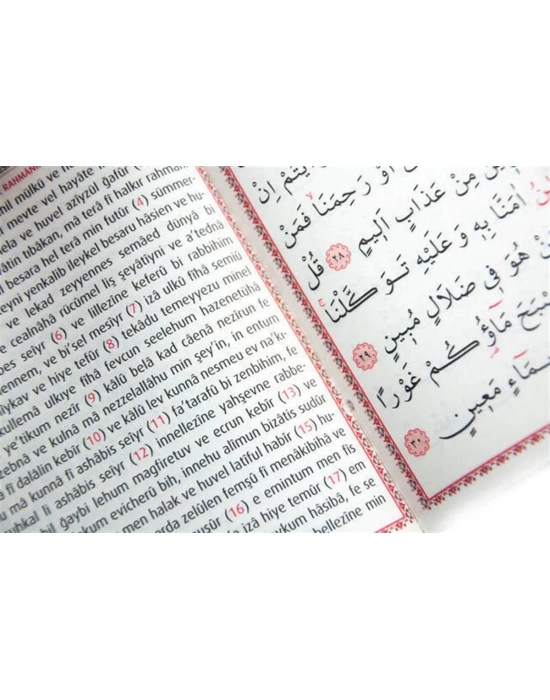 RAHMANI
mil mülkü ve h
meyte vel hayâte
ela ve huvel azîyzül gafûr
âtin tıbâkan, mâ terâ fî halkır rahmân
l besara hel terâ min futûr (4) sümmer-
eyni yenkalib ileykel besaru hâsien ve hu-
ve lekad zeyyennes semâed dünyâ bi
ve cealnâhâ rücûmel liş şeyâtîyni ve a'tednâ
bes seîyr (6) ve lillezîne keferû bi rabbihim
ennem, ve bi'sel mesîyr (7) izâ ulkû fîhâ semiû
hîykav ve hiye tefûr (8) tekâdu temeyyezu minel
küllemâ ulkıye fîhâ fevcun seelehum hazenetühâ
e'tikum nezîr (9) kâlû belâ kad câenâ nezîrun fe
zebnâ ve kulnâ mâ nezzelallâhu min şey'in, in entum
â fî dalâlin kebîr (10) ve kâlû lev kunnâ nesmeu ev na'k-
u mâ kunnâ fî ashâbis seîyr (11) fa'tarafû bi zenbihim, fe
uhkal fi ashâbis seîyr (12) innellezîne yahşevne rabbe-
bil ğaybi lehum mağfiretuv ve ecrun kebîr (13) ve
kum evicherû bih, innehu alîmun bizâtis sudûr
men halak ve huvel latîful habîr (15) hu-
arda zelûlen femşû fî menâkibihâ ve
nuşûr (16) e emintum men fis
izâ hiye temûr (17) em
aykum hâsibâ, fe se
bellezîne min
اَوْ رَحِمَنَاۙ فَمَنْ
مِنْ عَذَابٍ اَلِيمٍ ٢٨ قُلْ
اٰمَنَّا بِهِ وَعَلَيْهِ تَوَكَّلْنَاۚ
هُوَ فِي ضَلَالٍ مُبِينٍ ٢٩
مَاؤُكُمْ غَوْرًا
مَعِينٍ ٣٠